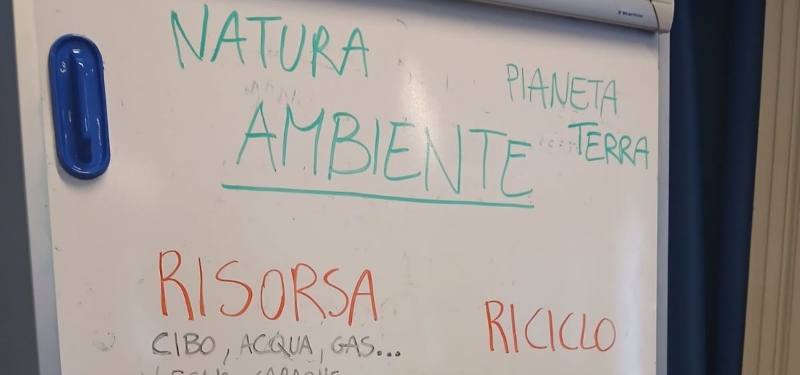 NATURA
PIANETA
TERRA
AMBIENTE
RISORSA
RICICLO
CIBO, ACQUA, GAS...